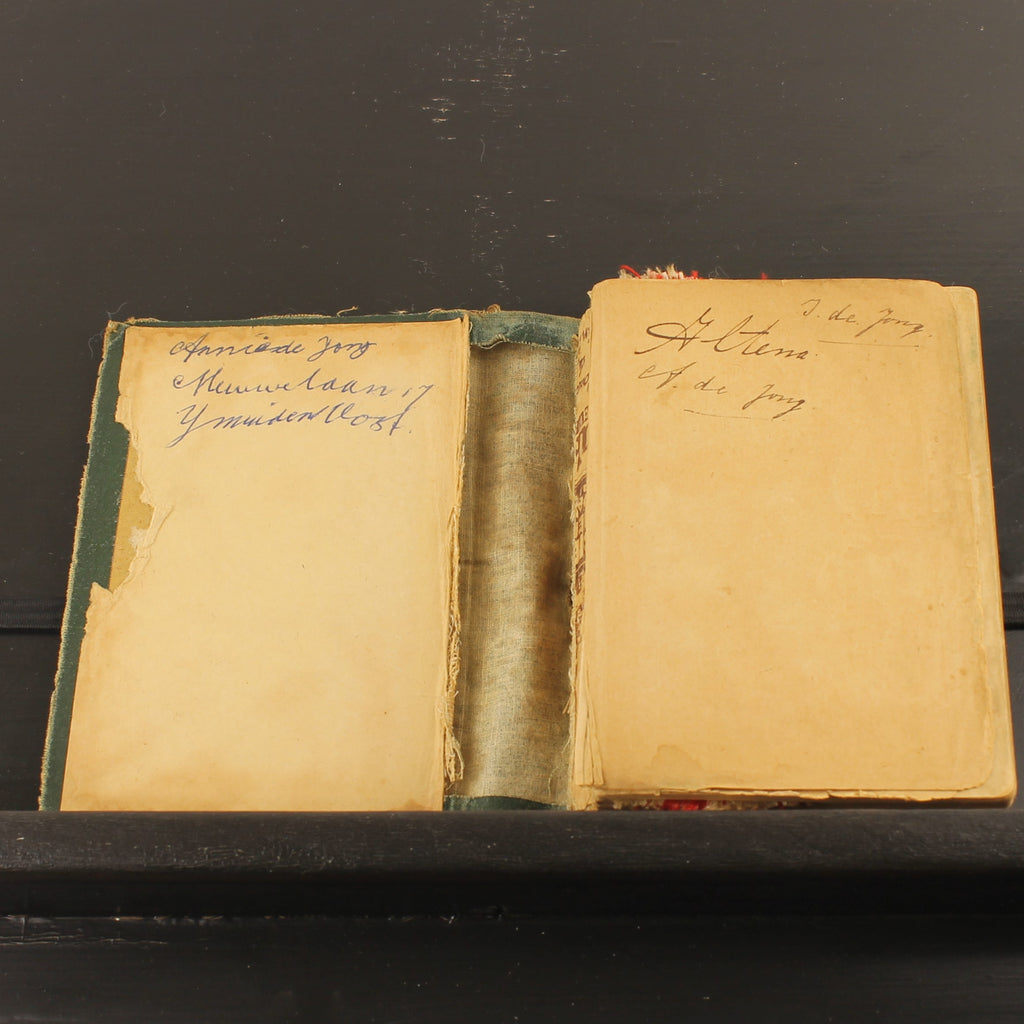 Annie de Jong
Meeuwelaan 17
Ymuiden Oost.
J. de Jong.
Altena.
A. de Jong.